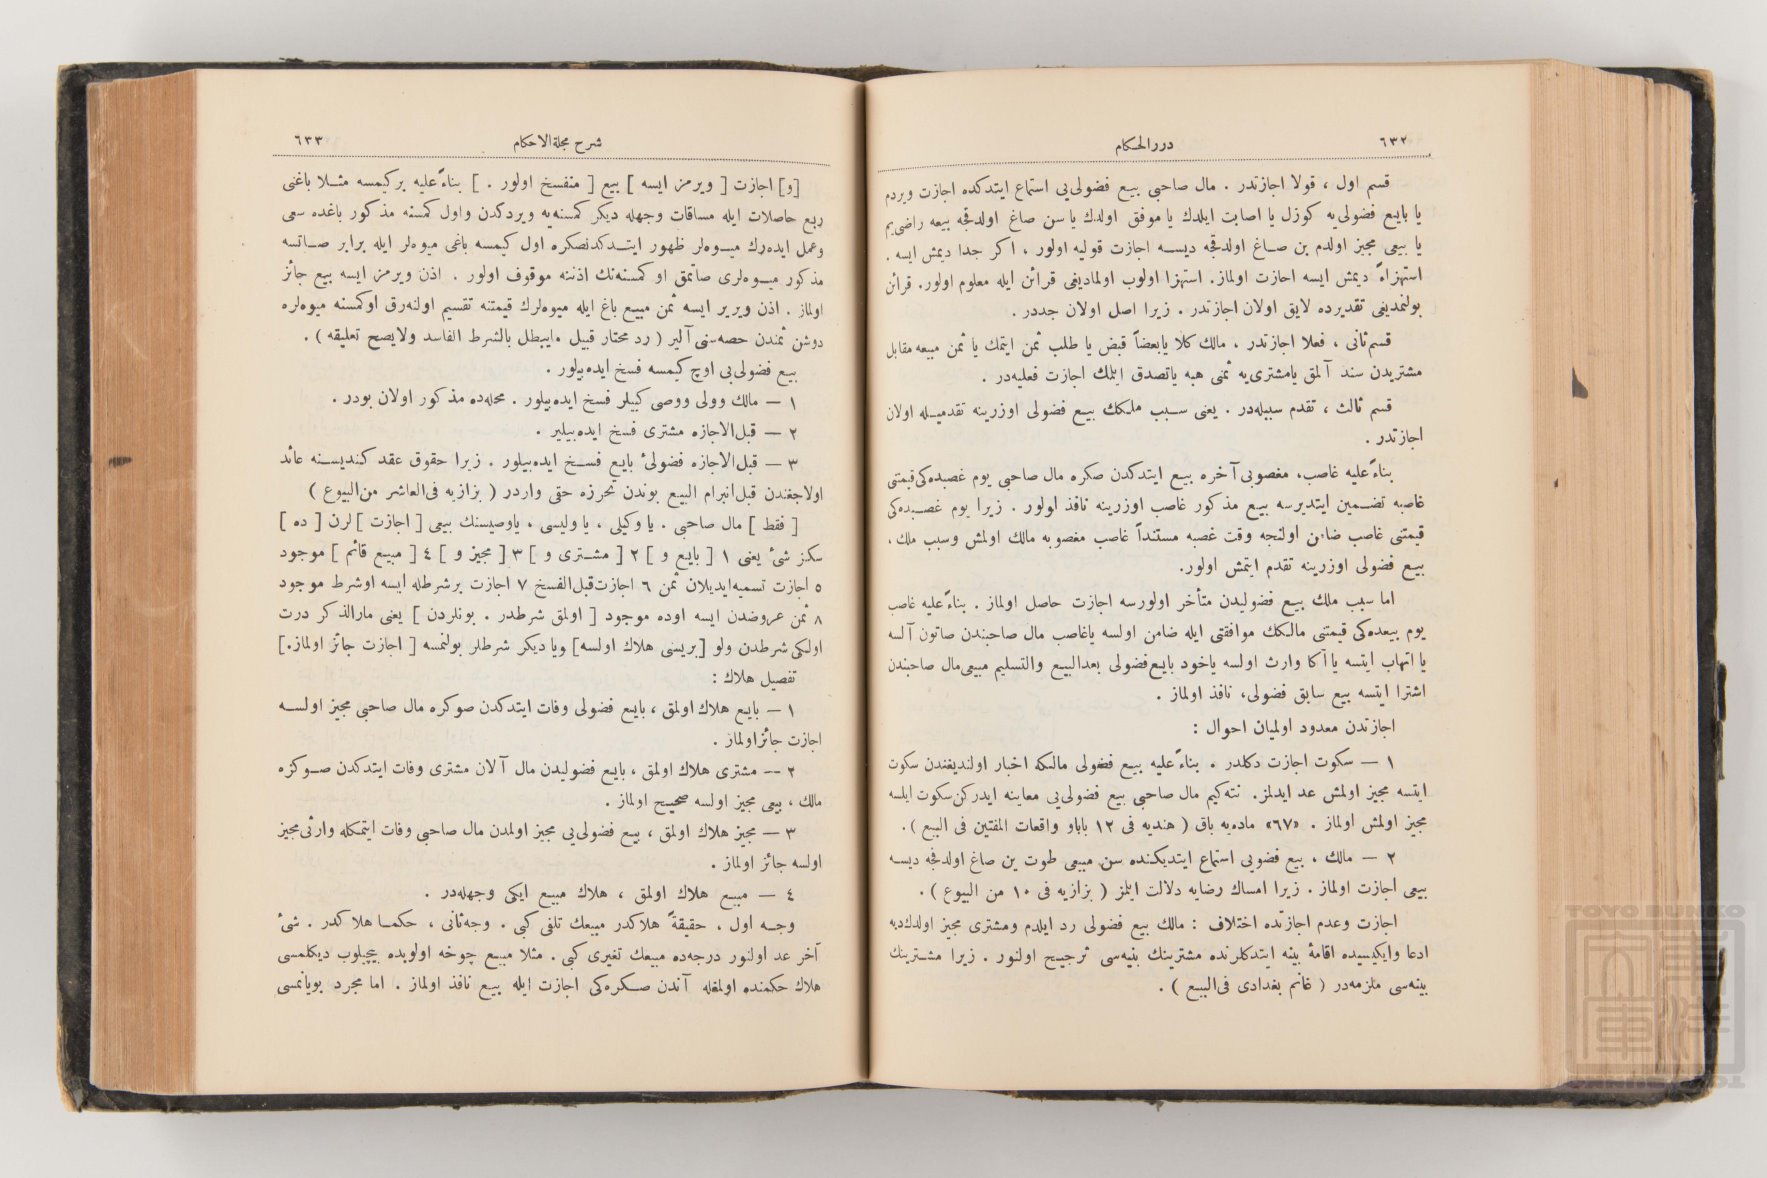 ٦٣٢
دررالحكام
قسم اول ، قولا اجازتدر . مال صاحبی بيع فضولی‌يی استماع ايتدكده اجازت ويردم
يا بايع فضولی‌يه كوزل يا اصابت ايلدك يا موفق اولدك يا سن صاغ اولدقجه بيعه راضی‌يم
يا بيعی مجيز اولدم بن صاغ اولدقجه ديسه اجازت قوليه اولور ، اكر جدا ديمش ايسه .
استهزاءً ديمش ايسه اجازت اولماز. استهزا اولوب اولماديغی قرائن ايله معلوم اولور. قرائن
بولنمديغی تقديرده لايق اولان اجازتدر . زيرا اصل اولان جددر .
قسم ثانی ، فعلا اجازتدر . مالك كلا يابعضاً قبض يا طلب ثمن ايتمك يا ثمن مبيعه مقابل
مشتريدن سند آلمق يامشتری‌يه ثمنی هبه ياتصدق ايلمك اجازت فعليه‌در .
قسم ثالث ، تقدم سبيله‌در . يعنی سبب ملكك بيع فضولی اوزرينه تقدميله اولان
اجازتدر .
بناءً عليه غاصب، مغصوبی آخره بيع ايتدكدن صكره مال صاحبی يوم غصبده‌كی قيمتنی
غاصبه تضمين ايتديرسه بيع مذكور غاصب اوزرينه نافذ اولور . زيرا يوم غصبده‌كی
قيمتنی غاصب ضامن اولنجه وقت غصبه مستنداً غاصب مغصوبه مالك اولمش وسبب ملك ،
بيع فضولی اوزرينه تقدم ايتمش اولور.
اما سبب ملك بيع فضوليدن متأخر اولورسه اجازت حاصل اولماز . بناءً عليه غاصب
يوم بيعده‌كی قيمتنی مالكك موافقتی ايله ضامن اولسه ياغاصب مال صاحبندن صاتون آلسه
يا اتهاب ايتسه يا آكا وارث اولسه ياخود بايع فضولی بعدالبيع والتسليم مبيعی مال صاحبندن
اشترا ايتسه بيع سابق فضولی، نافذ اولماز .
اجازتدن معدود اولميان احوال :
١ — سكوت اجازت دكلدر . بناءً عليه بيع فضولی مالكه اخبار اولنديغندن سكوت
ايتسه مجيز اولمش عد ايدلمز. نته‌كيم مال صاحبی بيع فضولی‌يی معاينه ايدركن سكوت ايلسه
مجيز اولمش اولماز . «٦٧» ماده‌يه باق ( هنديه فی ١٢ باباو واقعات المفتين فی البيع ).
٢ — مالك ، بيع فضوبی استماع ايتديكنده سن مبيعی طوت بن صاغ اولدقجه ديسه
بيعی اجازت اولماز . زيرا امساك رضايه دلالت ايلمز ( بزازيه فی ١٠ من البيوع ) .
اجازت وعدم اجازتده اختلاف : مالك بيع فضولی رد ايلدم ومشتری مجيز اولدك ديه
ادعا وايكيسيده اقامهٔ بينه ايتدكلرنده مشترينك بينه‌سی ترجيح اولنور . زيرا مشترينك
بينه‌سی ملزمه‌در ( غانم بغدادی فی البيع ) .
شرح مجلةالاحكام
٦٣٣
[و] اجازت [ ويرمز ايسه ] بيع [ منفسخ اولور . ] بناءً عليه بركيمسه مثلا باغنی
ربع حاصلات ايله مساقات وجهله ديكر كمسنه‌يه ويردكدن واول كمسنه مذكور باغده سعی
وعمل ايده‌رك ميوه‌لر ظهور ايتدكدنصكره اول كيمسه باغی ميوه‌لر ايله برابر صاتسه
مذكور ميوه‌لری صاتمق او كمسنه‌نك اذننه موقوف اولور . اذن ويرمز ايسه بيع جائز
اولماز . اذن ويرير ايسه ثمن مبيع باغ ايله ميوه‌لرك قيمتنه تقسيم اولنه‌رق اوكمسنه ميوه‌لره
دوشن ثمندن حصه‌سنی آلير ( رد محتار قبيل مايبطل بالشرط الفاسد ولايصح تعليقه ) .
بيع فضولی‌بی اوچ كيمسه فسخ ايده‌بيلور .
١ — مالك وولی ووصی كبيلر فسخ ايده‌بيلور . محله‌ده مذكور اولان بودر .
٢ — قبل‌الاجازه مشتری فسخ ايده‌بيلير .
٣ — قبل‌الاجازه فضولیٔ بايع فسخ ايده‌بيلور . زيرا حقوق عقد كنديسنه عائد
اولاجغندن قبل‌انبرام البيع بوندن تحرزه حقی واردر ( بزازيه فی‌العاشر من‌البيوع )
[ فقط ] مال صاحبی . يا وكيلی ، يا وليسی ، ياوصيسنك بيعی [ اجازت ] لرن [ ده ]
سكز شیٔ يعنی ١ [ بايع و ] ٢ [ مشتری و ] ٣ [ مجيز و ] ٤ [ مبيع قائم ] موجود
٥ اجازت تسميه‌ايديلان ثمن ٦ اجازت‌قبل‌الفسخ ٧ اجازت برشرطله ايسه اوشرط موجود
٨ ثمن عروضدن ايسه اوده موجود [ اولمق شرطدر . بونلردن ] يعنی مارالذكر درت
اولكی شرطدن ولو [بريسی هلاك اولسه] وياديكر شرطلر بولنمسه [ اجازت جائز اولماز.]
تفصيل هلاك :
١ — بايع هلاك اولمق ، بايع فضولی وفات ايتدكدن صوكره مال صاحبی مجيز اولسه
اجازت جائزاولماز .
٢ — مشتری هلاك اولمق ، بايع فضوليدن مال آلان مشتری وفات ايتدكدن صوكره
مالك ، بيعی مجيز اولسه صحيح اولماز .
٣ — مجيز هلاك اولمق ، بيع فضولی‌يی مجيز اولمدن مال صاحبی وفات ايتمكله وارثی مجيز
اولسه جائز اولماز .
٤ — مبيع هلاك اولمق ، هلاك مبيع ايكی وجهله‌در .
وجه اول ، حقيقةً هلاكدر مبيعك تلفی كبی . وجه‌ثانی ، حكما هلاكدر . شیٔ
آخر عد اولنور درجه‌ده مبيعك تغيری كبی . مثلا مبيع چوخه اولوبده بيچيلوب ديكلمسی
هلاك حكمنده اولمغله آندن صكره‌كی اجازت ايله بيع نافذ اولماز . اما مجرد بويانمسی
TOYO BUNKO